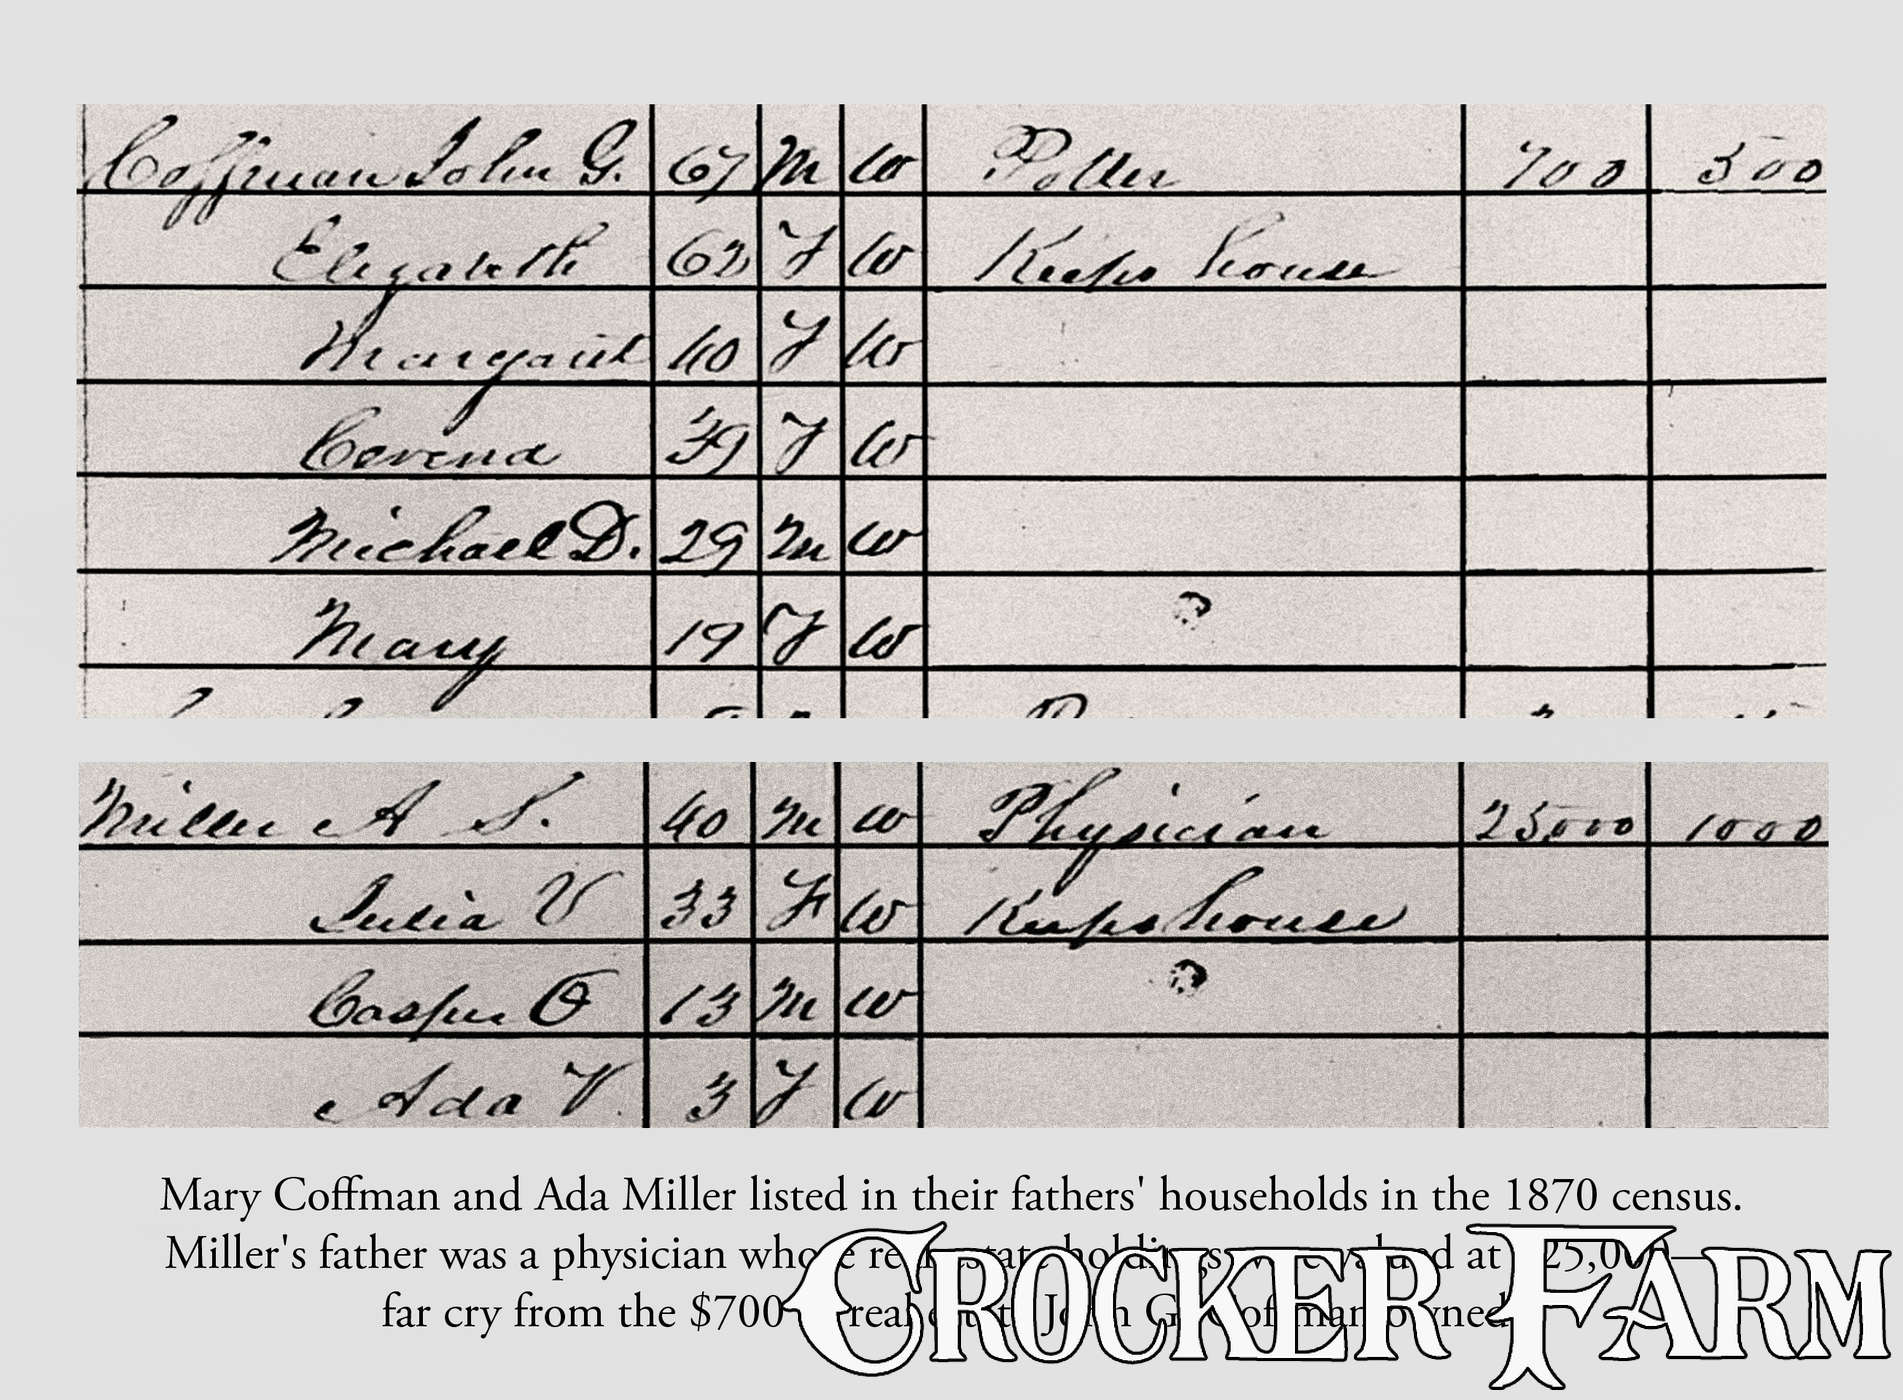 Coffman John G. 67 M W Potter 700 500
Elizabeth 62 F W Keeps house
Margaret 40 F W
39 F W
Michael D. 29 M W
Mary 19 F W
Miller A S. 40 M W Physician 25000 1000
Julia V 33 F W Keeps house
Casper O 13 M W
Ada V. 3 F W
Mary Coffman and Ada Miller listed in their fathers' households in the 1870 census.
Miller's father was a physician whose real estate holdings were valued at $25,000—
far cry from the $700 real estate John G. Coffman owned
CROCKER FARM